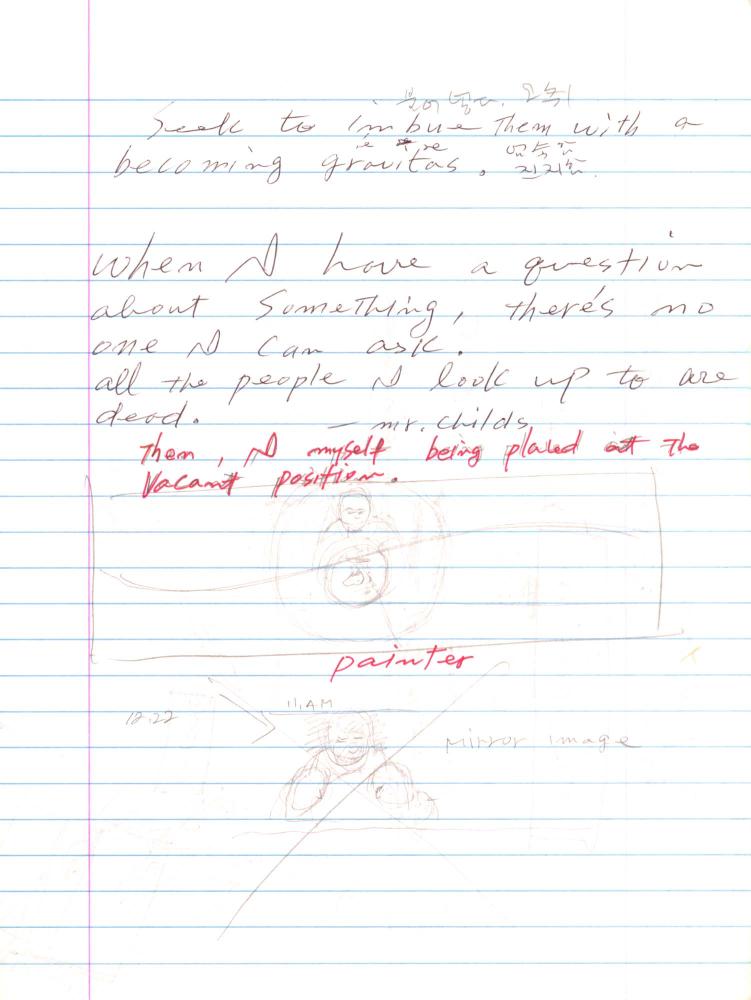 불어 넣다.
Seek to imbue them with a
becoming gravitas. 엄숙함
진지함.
When I have a question
about something, there's no
one I can ask.
all the people I look up to are
dead. — mr. Childs
Them, I myself being placed at the
Vacant position.
painter
11, AM
12.22
Mirror image